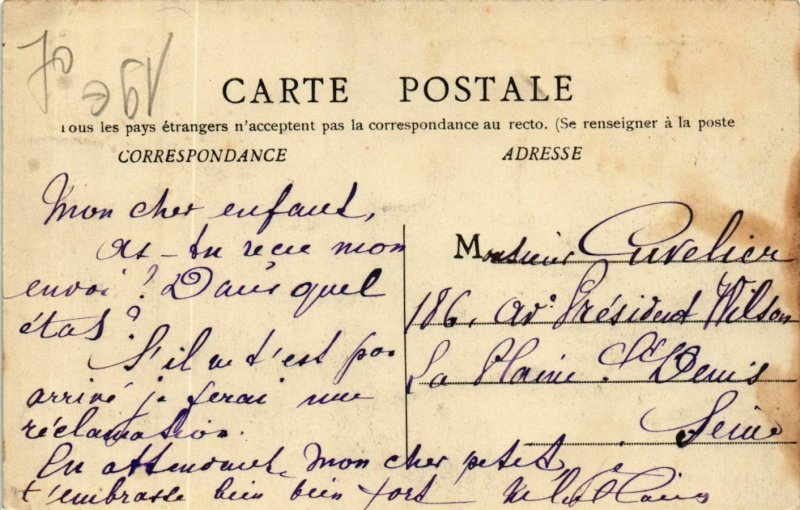 70
CARTE POSTALE
Tous les pays étrangers n'acceptent pas la correspondance au recto. (Se renseigner à la poste
CORRESPONDANCE
ADRESSE
Mon cher enfant,
as-tu recu mon
envoi? Dans quel
état?
S'il ne t'est pas
arrivé je ferai une
réclamation.
En attendant, mon cher petit,
t'embrasse bien bien fort
Monsieur Cuvelier
186, av: Président Wilson
La Plaine St Denis
Seine